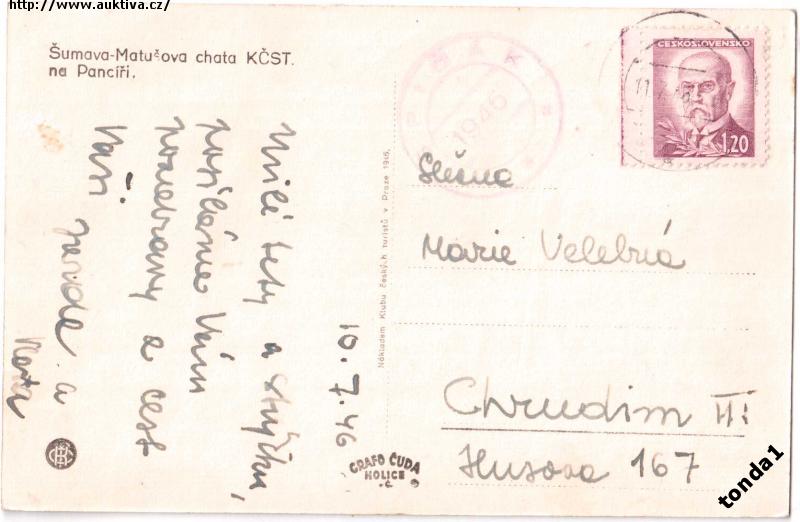 http://www.auktiva.cz/
Šumava-Matušova chata KČST.
na Pancíři.
Milé tety a strýčku,
posíláme Vám
pozdravy z cest
Vaši Jarda a
10.7.46
Nákladem Klubu českých turistů v Praze 1946.
GRAFO ČUDA
HOLICE
.Č.
1946
ČESKOSLOVENSKO
1,20
Slečna
Marie Velebná
Chrudim II:
Husova 167
tonda1